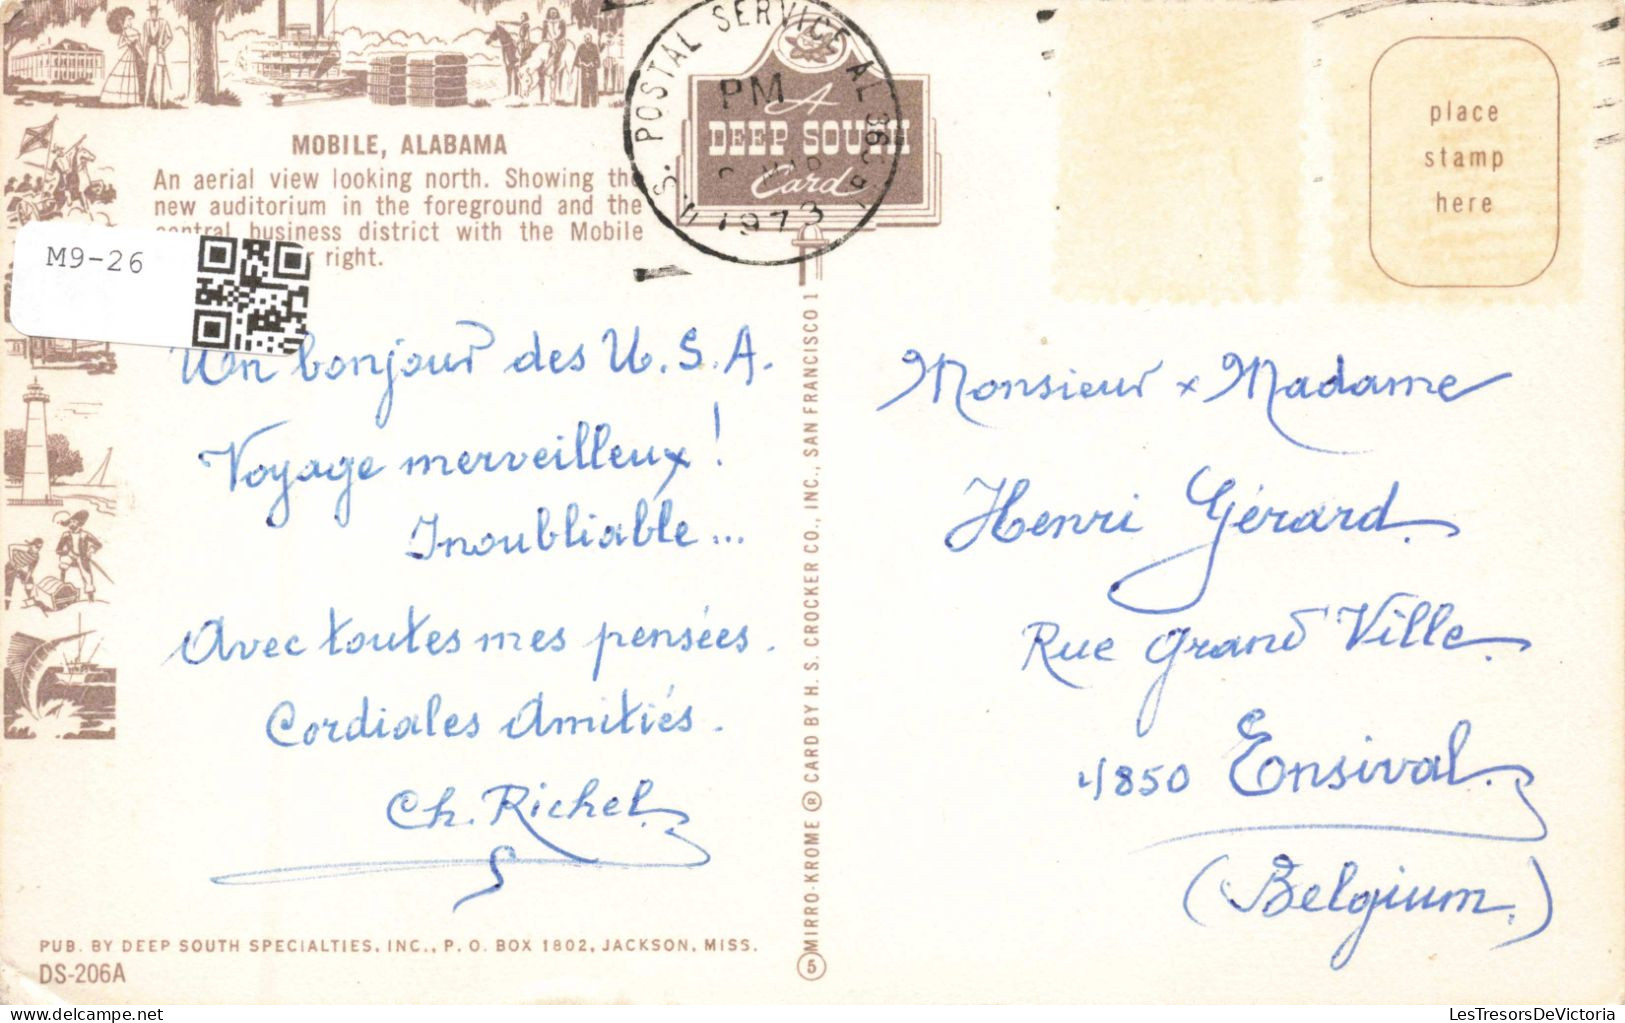 MOBILE, ALABAMA
An aerial view looking north. Showing the
new auditorium in the foreground and the
central business district with the Mobile
right.
M9-26
U.S. POSTAL SERVICE AL
PM
MAR
1973
A
DEEP SOUTH
Card
place
stamp
here
Un bonjour des U.S.A.
Voyage merveilleux !
Inoubliable...
Avec toutes mes pensées.
Cordiales Amitiés.
Ch. Richel
Monsieur x Madame
Henri Gérard.
Rue Grand Ville.
4850 Ensival.
(Belgium.)
MIRRO-KROME ® CARD BY H. S. CROCKER CO., INC., SAN FRANCISCO 1
5
PUB. BY DEEP SOUTH SPECIALTIES, INC., P. O. BOX 1802, JACKSON, MISS.
DS-206A
LesTresorsDeVictoria